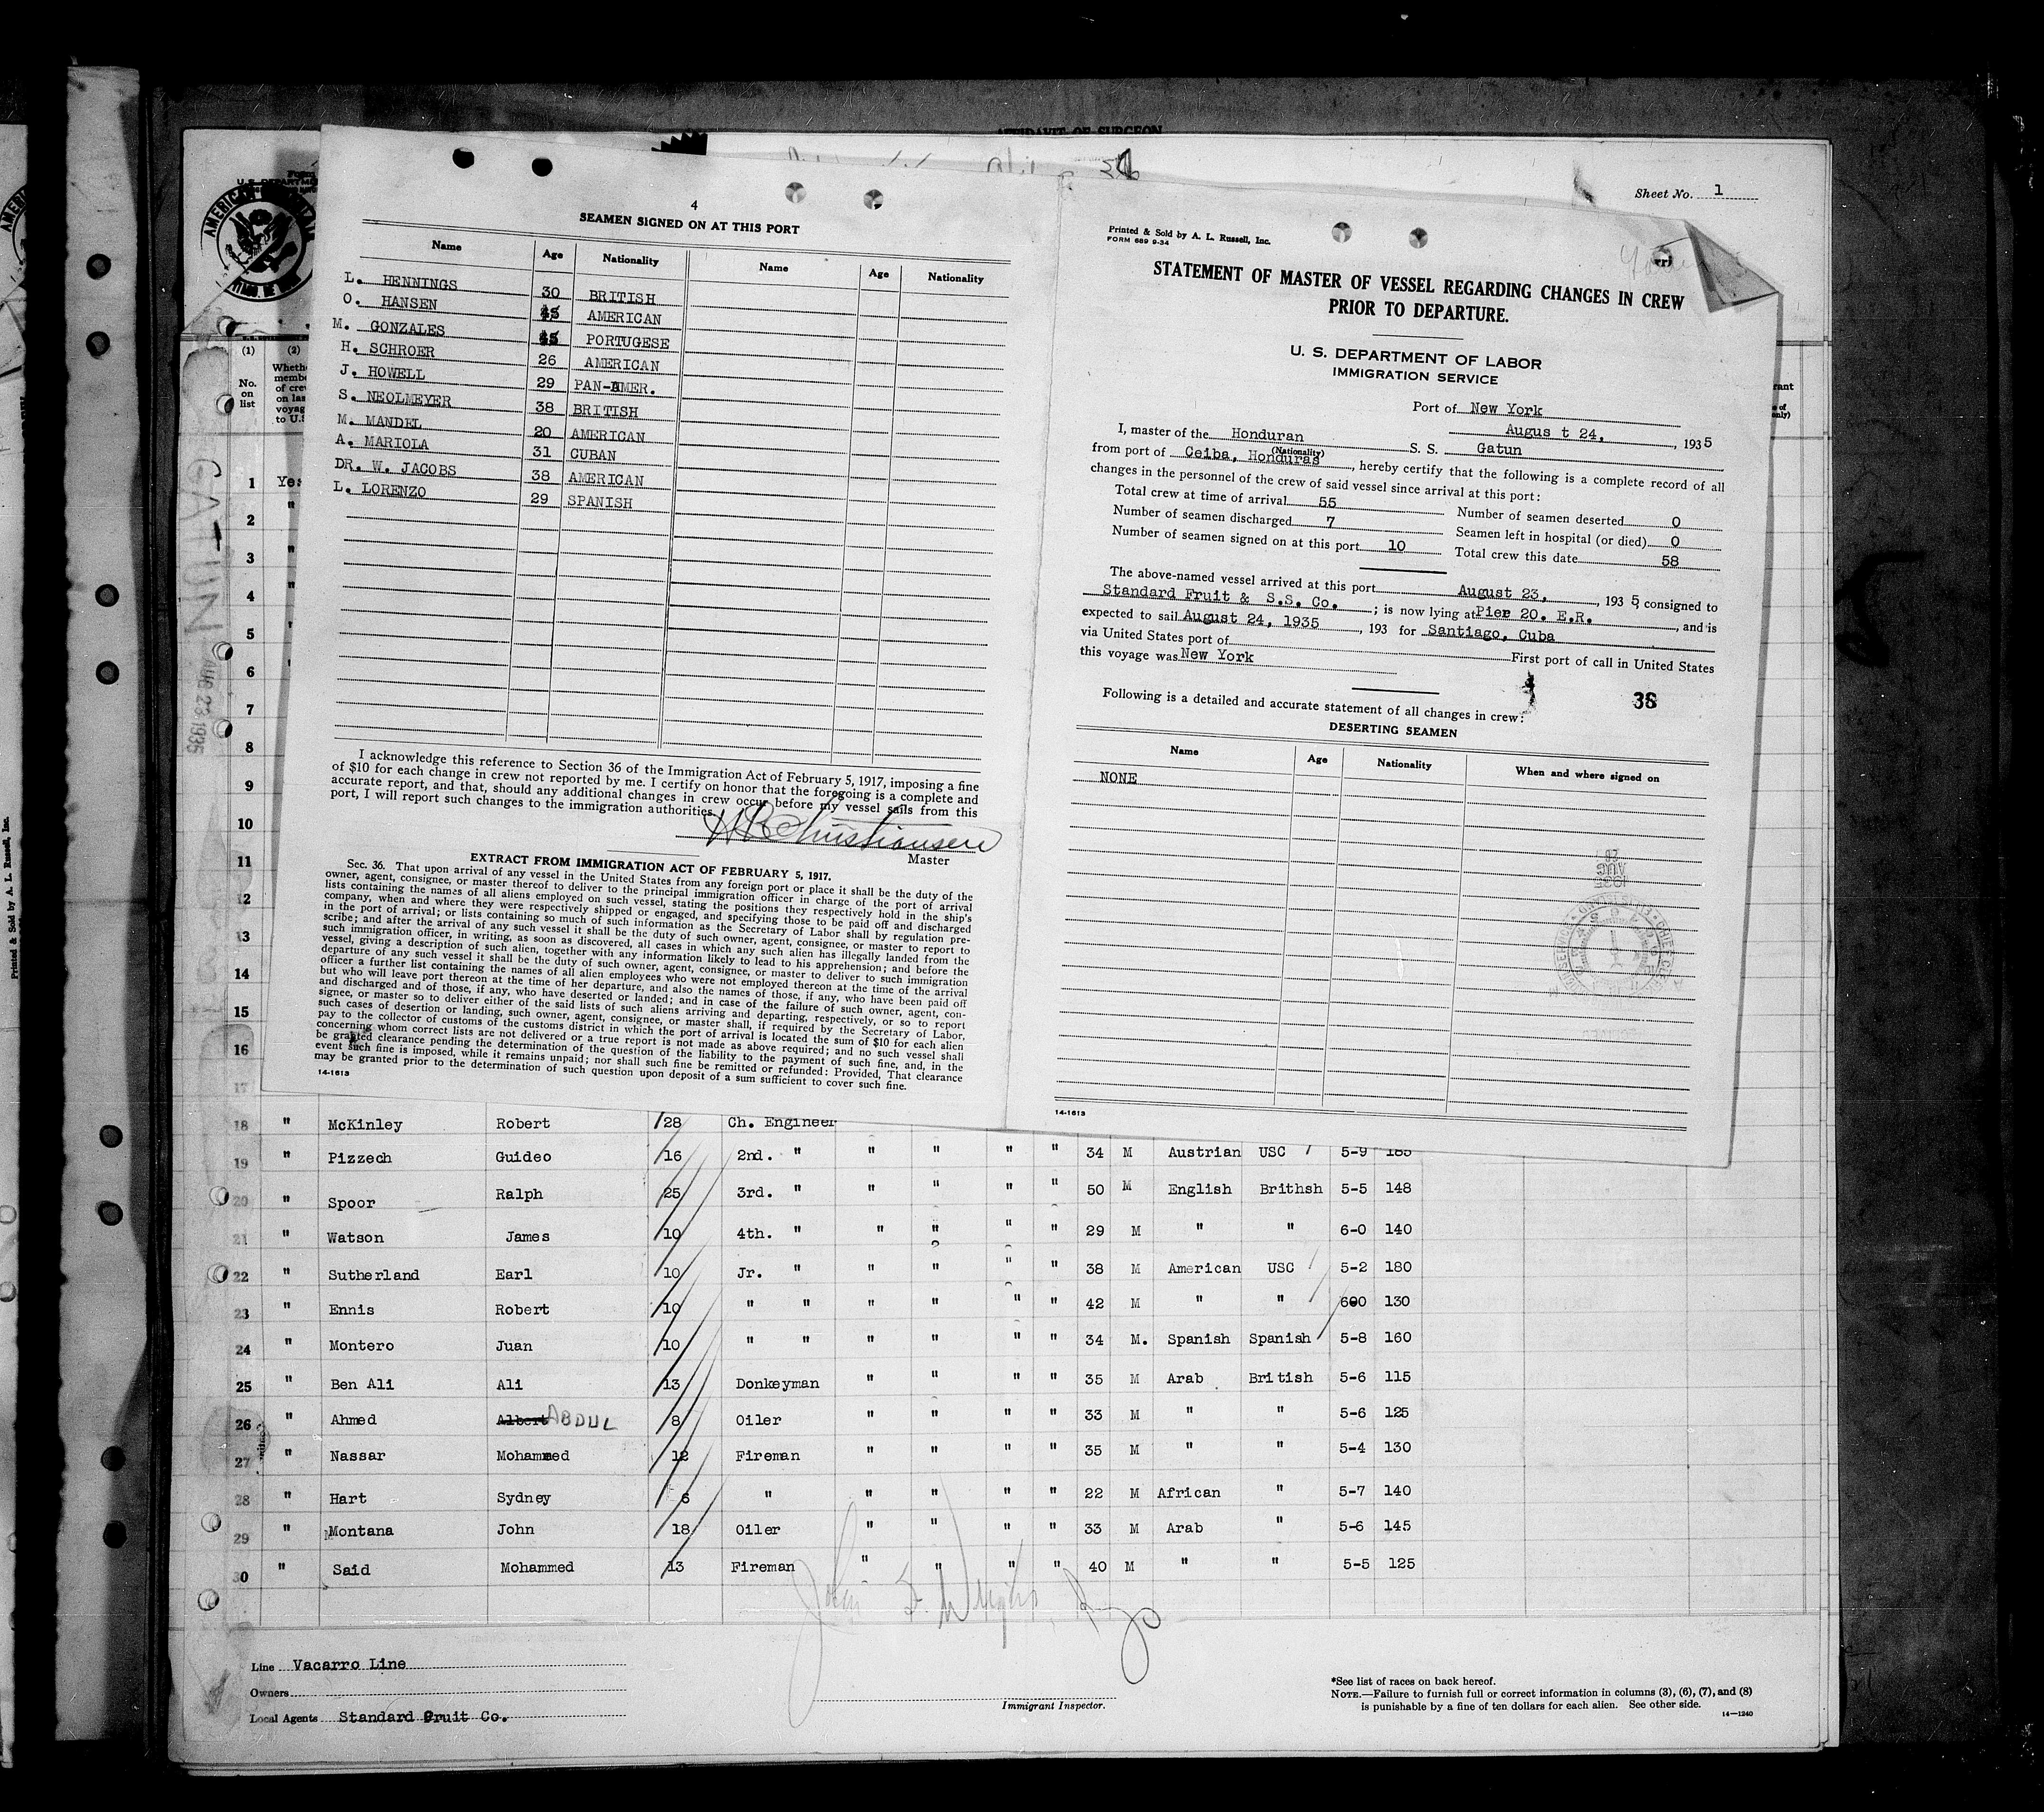 AFFIDAVIT OF SURGEON
Sheet No. 1
4
SEAMEN SIGNED ON AT THIS PORT
Name Age Nationality Name Age Nationality
L. HENNINGS 30 BRITISH
O. HANSEN 45 AMERICAN
M. GONZALES 45 PORTUGESE
H. SCHROER 26 AMERICAN
J. HOWELL 29 PAN-AMER.
S. NEOLMEYER 38 BRITISH
M. MANDEL 20 AMERICAN
A. MARIOLA 31 CUBAN
DR. W. JACOBS 38 AMERICAN
L. LORENZO 29 SPANISH
I acknowledge this reference to Section 36 of the Immigration Act of February 5, 1917, imposing a fine
of $10 for each change in crew not reported by me. I certify on honor that the foregoing is a complete and
accurate report, and that, should any additional changes in crew occur before my vessel sails from this
port, I will report such changes to the immigration authorities.
Christiansen
Master
EXTRACT FROM IMMIGRATION ACT OF FEBRUARY 5, 1917.
Sec. 36. That upon arrival of any vessel in the United States from any foreign port or place it shall be the duty of the
owner, agent, consignee, or master thereof to deliver to the principal immigration officer in charge of the port of arrival
lists containing the names of all aliens employed on such vessel, stating the positions they respectively hold in the ship's
company, when and where they were respectively shipped or engaged, and specifying those to be paid off and discharged
in the port of arrival; or lists containing so much of such information as the Secretary of Labor shall by regulation pre-
scribe; and after the arrival of any such vessel it shall be the duty of such owner, agent, consignee, or master to report to
such immigration officer, in writing, as soon as discovered, all cases in which any such alien has illegally landed from the
vessel, giving a description of such alien, together with any information likely to lead to his apprehension; and before the
departure of any such vessel it shall be the duty of such owner, agent, consignee, or master to deliver to such immigration
officer a further list containing the names of all alien employees who were not employed thereon at the time of the arrival
but who will leave port thereon at the time of her departure, and also the names of those, if any, who have been paid off
and discharged and of those, if any, who have deserted or landed; and in case of the failure of such owner, agent, con-
signee, or master so to deliver either of the said lists of such aliens arriving and departing, respectively, or so to report
such cases of desertion or landing, such owner, agent, consignee, or master shall, if required by the Secretary of Labor,
pay to the collector of customs of the customs district in which the port of arrival is located the sum of $10 for each alien
concerning whom correct lists are not delivered or a true report is not made as above required; and no such vessel shall
be granted clearance pending the determination of the question of the liability to the payment of such fine, and, in the
event such fine is imposed, while it remains unpaid; nor shall such fine be remitted or refunded: Provided, That clearance
may be granted prior to the determination of such question upon deposit of a sum sufficient to cover such fine.
14-1613
Printed & Sold by A. L. Russell, Inc.
FORM 689 9-34
STATEMENT OF MASTER OF VESSEL REGARDING CHANGES IN CREW
PRIOR TO DEPARTURE.
U. S. DEPARTMENT OF LABOR
IMMIGRATION SERVICE
Port of New York
Augus t 24, , 1935
I, master of the Honduran S. S. Gatun
(Nationality)
from port of Ceiba, Honduras, hereby certify that the following is a complete record of all
changes in the personnel of the crew of said vessel since arrival at this port:
Total crew at time of arrival 55 Number of seamen deserted 0
Number of seamen discharged 7 Seamen left in hospital (or died) 0
Number of seamen signed on at this port 10 Total crew this date 58
The above-named vessel arrived at this port August 23, , 193 5, consigned to
Standard Fruit & S.S. Co. ; is now lying at Pier 20. E.R. , and is
expected to sail August 24, 1935 , 193 for Santiago, Cuba
via United States port of First port of call in United States
this voyage was New York
38
Following is a detailed and accurate statement of all changes in crew:
DESERTING SEAMEN
Name Age Nationality When and where signed on
NONE
14-1613
(1) (2)
No.
on
list
GATUN
AUG 23 1935
1 Yes
2 "
3 "
4 "
5 "
6 "
7
8
9
10
11
12
13
14
15
16
17
18 " McKinley Robert 28 Ch. Engineer
19 " Pizzech Guideo 16 2nd. " " " " " 34 M Austrian USC 5-9 185
20 " Spoor Ralph 25 3rd. " " " " " 50 M English Brithsh 5-5 148
21 " Watson James 10 4th. " " " " " 29 M " " 6-0 140
22 " Sutherland Earl 10 Jr. " " " " " 38 M American USC 5-2 180
23 " Ennis Robert 10 " " " " " " 42 M " " 600 130
24 " Montero Juan 10 " " " " " " 34 M. Spanish Spanish 5-8 160
25 " Ben Ali Ali 13 Donkeyman " " " " 35 M Arab British 5-6 115
26 " Ahmed Albert ABDUL 8 Oiler " " " " 33 M " " 5-6 125
27 " Nassar Mohammed 12 Fireman " " " " 35 M " " 5-4 130
28 " Hart Sydney 6 " " " " " 22 M African " 5-7 140
29 " Montana John 18 Oiler " " " " 33 M Arab " 5-6 145
30 " Said Mohammed 13 Fireman " " " " 40 M " " 5-5 125
Line Vacarro Line
Owners
Local Agents Standard Fruit Co.
Immigrant Inspector.
*See list of races on back hereof.
NOTE.—Failure to furnish full or correct information in columns (3), (6), (7), and (8)
is punishable by a fine of ten dollars for each alien. See other side.
14—1240
Printed & Sold by A. L. Russell, Inc.